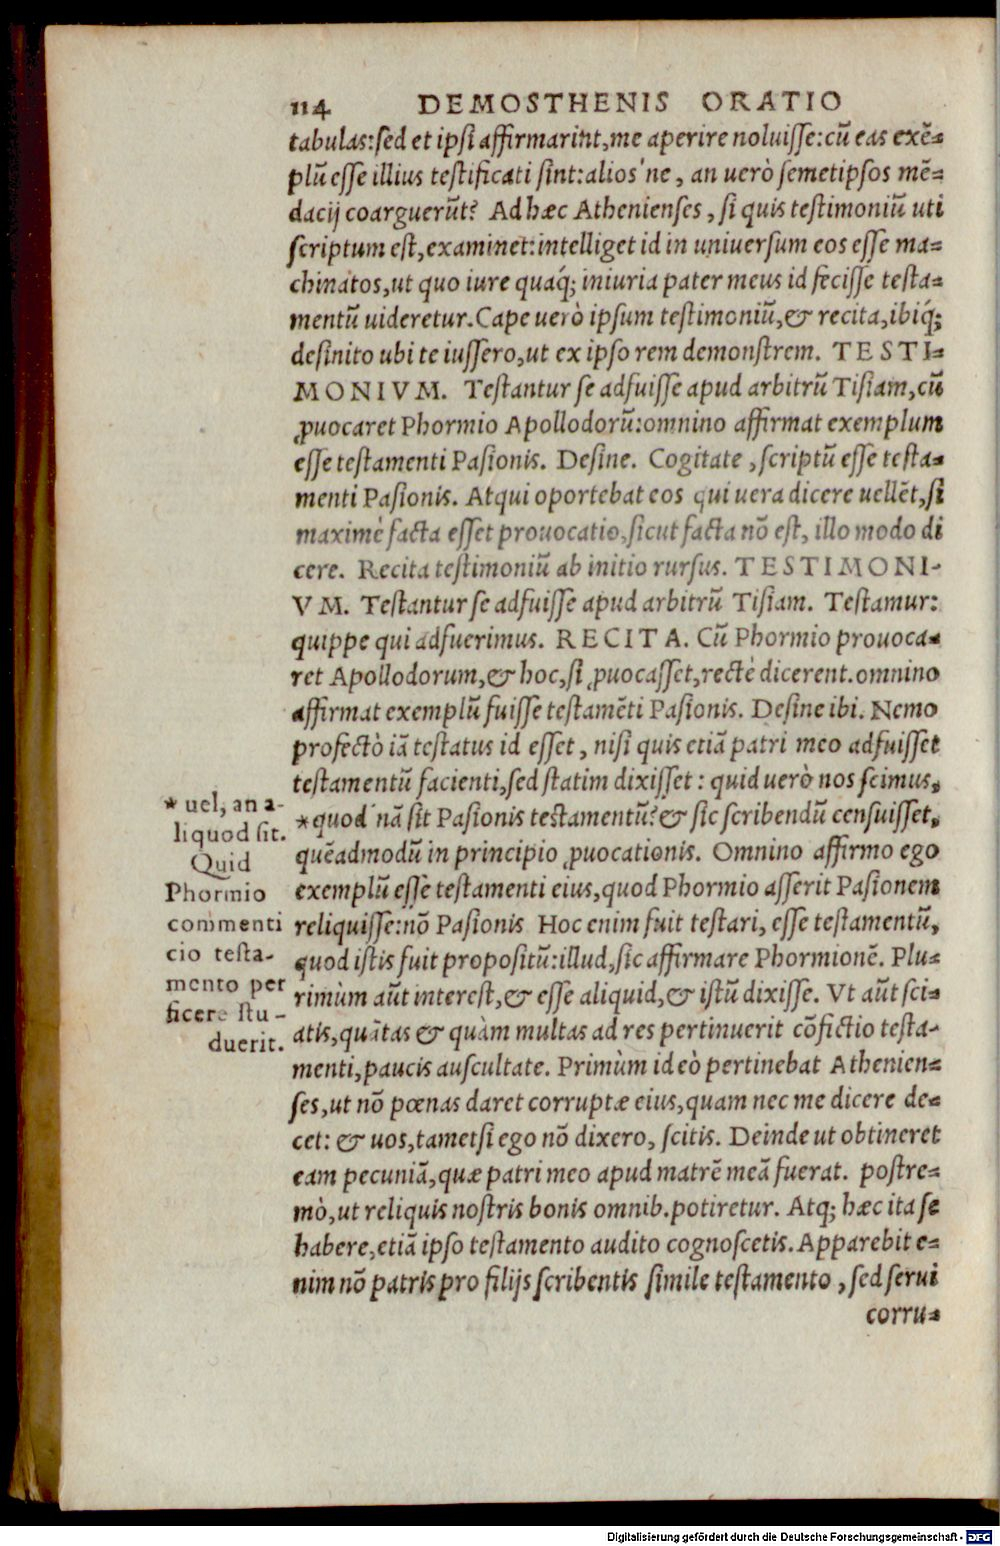 114 DEMOSTHENIS ORATIO
tabulas:sed et ipsi affirmarint,me aperire noluisse:cū eas exē=
plū esse illius testificati sint:alios'ne, an uerò semetipsos mē=
dacij coarguerūt? Ad hæc Athenienses, si quis testimoniū uti
scriptum est,examinet:intelliget id in uniuersum eos esse ma=
chinatos,ut quo iure quaq́; iniuria pater meus id fecisse testa=
mentū uideretur.Cape uerò ipsum testimoniū,& recita,ibiq́;
desinito ubi te iussero,ut ex ipso rem demonstrem. TESTI=
MONIVM. Testantur se adfuisse apud arbitrū Tisiam,cū
ꝓuocaret Phormio Apollodorū:omnino affirmat exemplum
esse testamenti Pasionis. Desine. Cogitate, scriptū esse testa=
menti Pasionis. Atqui oportebat eos qui uera dicere uellēt,si
maximè facta esset prouocatio,sicut facta nō est, illo modo di
cere. Recita testimoniū ab initio rursus. TESTIMONI-
VM. Testantur se adfuisse apud arbitrū Tisiam. Testamur:
quippe qui adfuerimus. RECITA. Cū Phormio prouoca=
ret Apollodorum,& hoc,si ꝓuocasset,rectè dicerent.omnino
affirmat exemplū fuisse testamēti Pasionis. Desine ibi. Nemo
profectò iā testatus id esset, nisi quis etiā patri meo adfuisset
testamentū facienti,sed statim dixisset: quid uerò nos scimus,
*quod'nā sit Pasionis testamentū? & sic scribendū censuisset,
quēadmodū in principio ꝓuocationis. Omnino affirmo ego
exemplū esse testamenti eius,quod Phormio asserit Pasionem
reliquisse:nō Pasionis Hoc enim fuit testari, esse testamentū,
quod istis fuit propositū:illud,sic affirmare Phormionē. Plu=
rimùm aūt interest,& esse aliquid,& istū dixisse. Vt aūt sci=
atis,quātas & quàm multas ad res pertinuerit cōfictio testa-
menti,paucis auscultate. Primùm id eò pertinebat Athenien=
ses,ut nō pœnas daret corruptæ eius,quam nec me dicere de=
cet: & uos,tametsi ego nō dixero, scitis. Deinde ut obtineret
eam pecuniā,quæ patri meo apud matrē meā fuerat. postre=
mò,ut reliquis nostris bonis omnib.potiretur. Atq; hæc ita se
habere,etiā ipso testamento audito cognoscetis.Apparebit e=
nim nō patris pro filijs scribentis simile testamento, sed serui
corru=
* uel, an a-
liquod sit.
Quid
Phormio
commenti
cio testa-
mento per
ficere stu-
duerit.
Digitalisierung gefördert durch die Deutsche Forschungsgemeinschaft - DFG